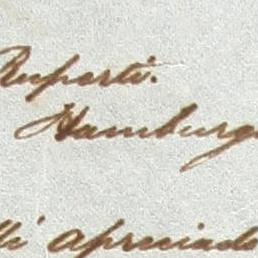 Ruperti.
Hamburgo
Mi apreciado